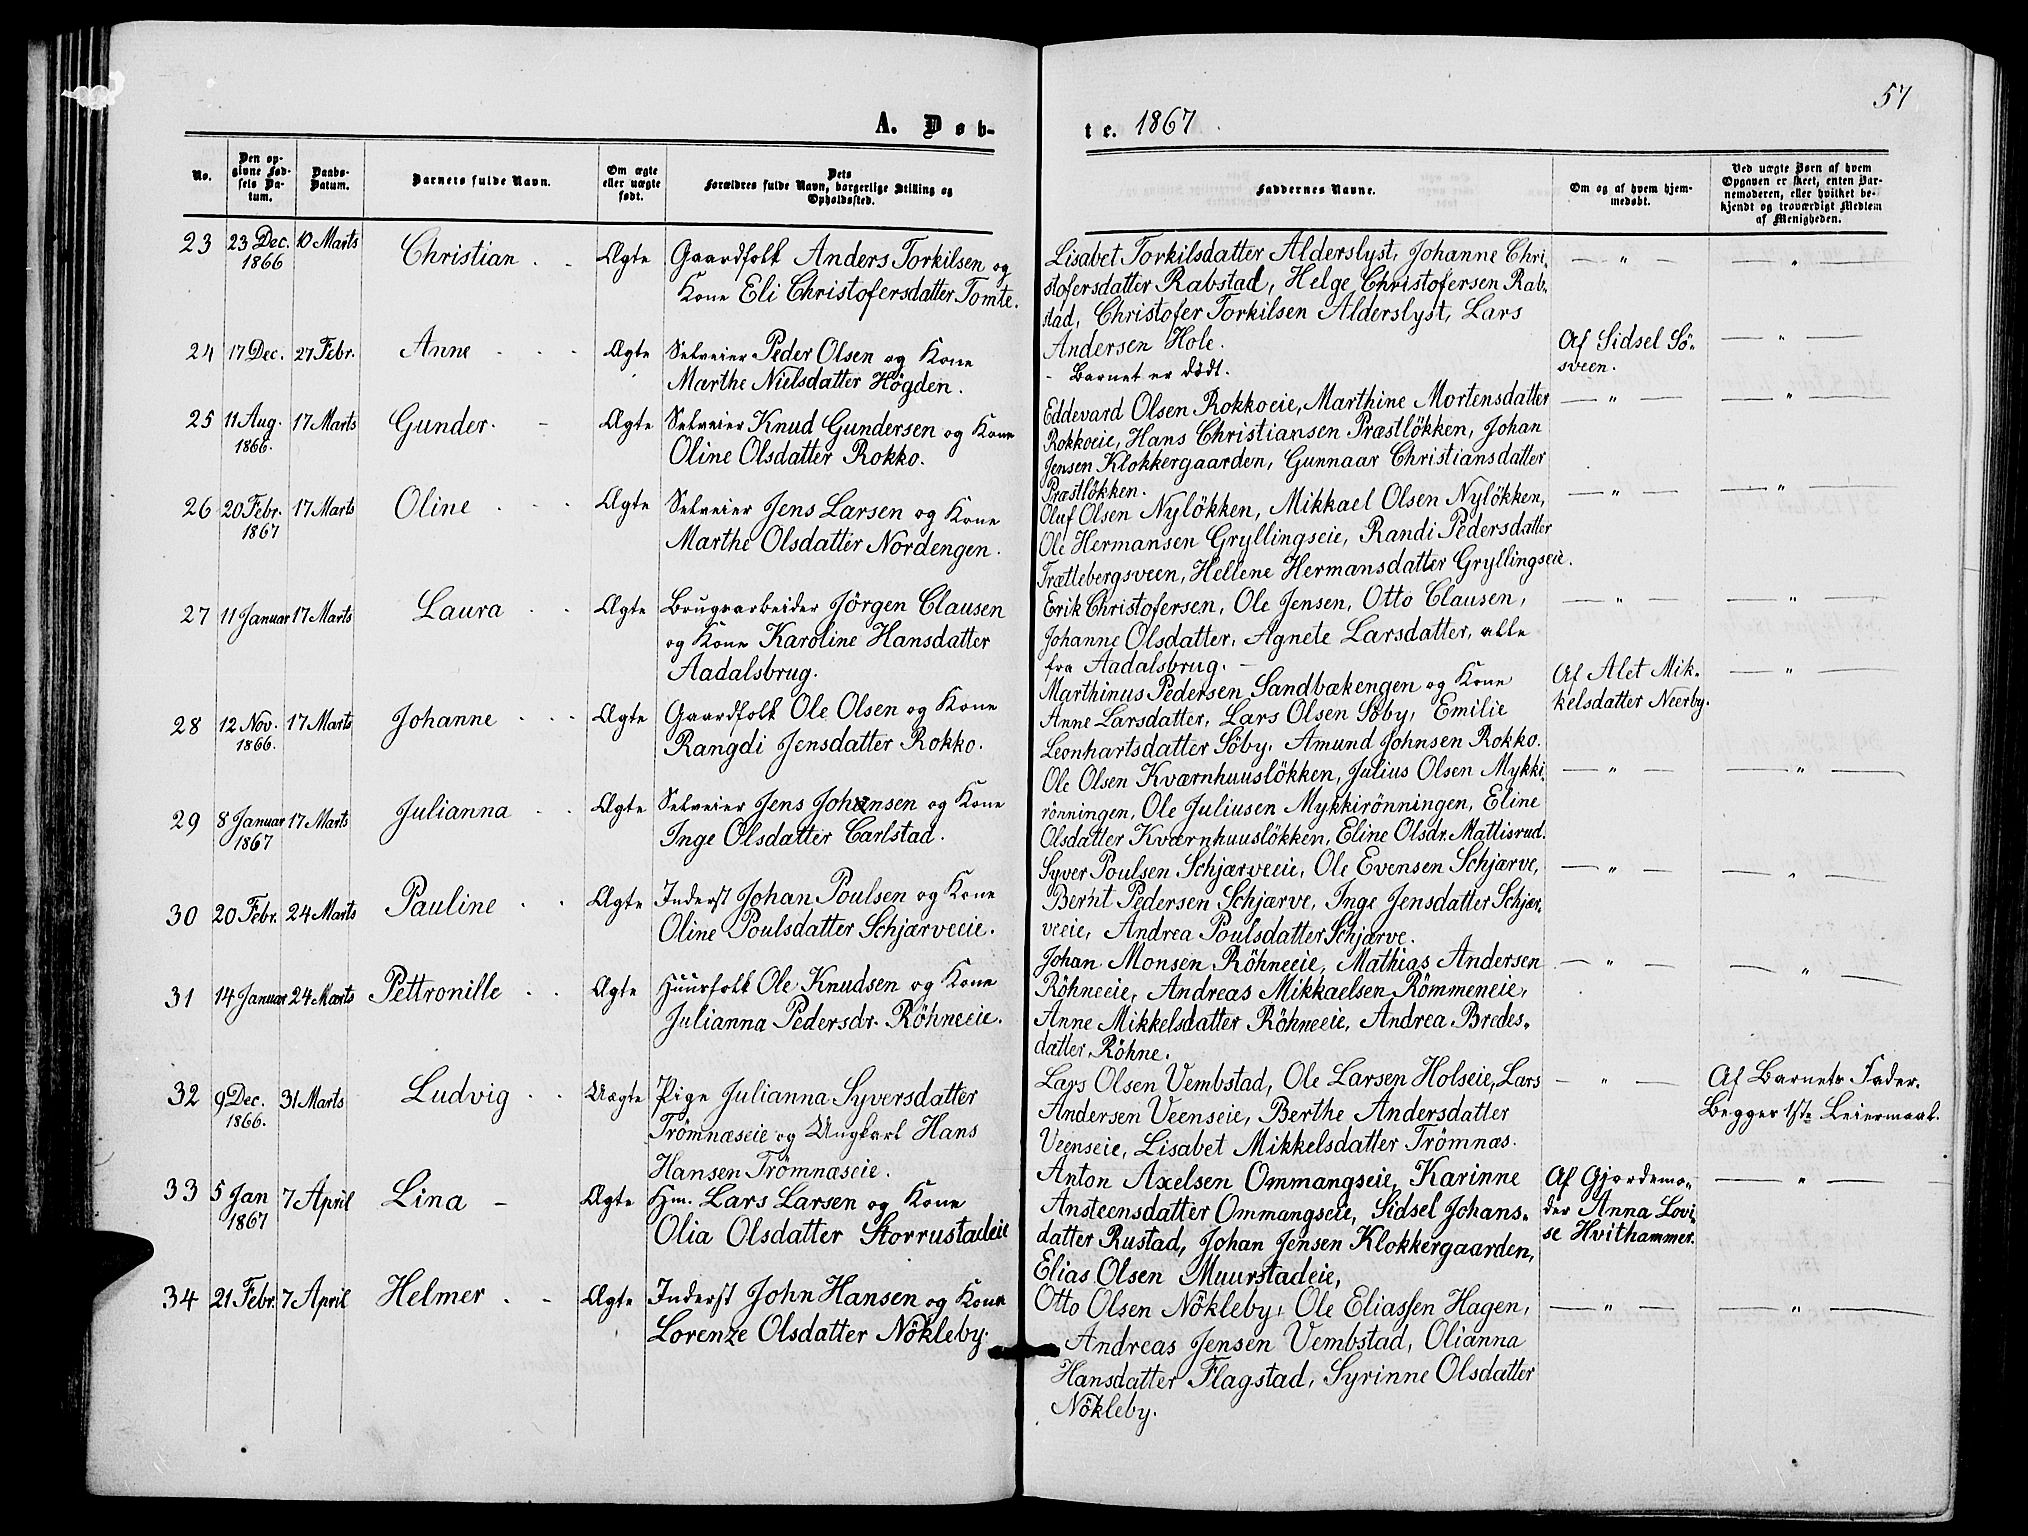 57
A. Døb-
te. 1867.
No.
Den op-
givne Fød-
sels Da-
tum.
Daabs-
Datum.
Barnets fulde Navn.
Om ægte
eller uægte
født.
Dets
Forældres fulde Navn, borgerlige Stilling og
Opholdssted.
Faddernes Navne.
Om og af hvem hjem-
medøbt.
Ved uægte Børn af hvem
Opgaven er skeet, enten Bar-
nemoderen, eller hvilket be-
kjendt og troværdigt Medlem
af Menigheden.
23 23 Dec. 10 Marts Christian Ægte Gaardfolk Anders Torkilsen og
1866 Kone Eli Christofersdatter Tomte.
Lisabet Torkilsdatter Alderslyst, Johanne Chri-
stofersdatter Rabstad, Helge Christofersen Rab-
stad, Christofer Torkilsen Alderslyst, Lars
Andersen Hole.
24 17 Dec. 27 Febr. Anne Ægte Selveier Peder Olsen og Kone
Marthe Nielsdatter Högden.
- Barnet er dödt.
Af Sidsel Sö-
sveen.
25 11 Aug. 17 Marts Gunder. Ægte Selveier Knud Gundersen og Kone
1866. Oline Olsdatter Rokko.
Eddevard Olsen Rokkoeie, Marthine Mortensdatter
Rokkoeie, Hans Christiansen Præstlökken, Johan
Jensen Klokkergaarden, Gunnaar Christiansdatter
Præstlökken.
26 20 Febr. 17 Marts Oline Ægte Selveier Jens Larsen og Kone
1867 Marthe Olsdatter Nordengen.
Oluf Olsen Nylökken, Mikkael Olsen Nylökken,
Ole Hermansen Gryllingseie, Randi Pedersdatter
Trættebergsveen, Hellene Hermansdatter Gryllingseie.
27 11 Januar 17 Marts Laura Ægte Brugsarbeider Jörgen Clausen
og Kone Karoline Hansdatter
Aadalsbrug.
Erik Christofersen, Ole Jensen, Otto Clausen,
Johanne Olsdatter, Agnete Larsdatter, alle
fra Aadalsbrug.
28 12 Nov. 17 Marts Johanne Ægte Gaardfolk Ole Olsen og Kone
1866. Rangdi Jensdatter Rokko.
Marthinus Pedersen Sandbækengen og Kone
Anne Larsdatter, Lars Olsen Söby, Emilie
Leonhartsdatter Söby, Amund Johnsen Rokko.
Af Alet Mik-
kelsdatter Neerby.
29 8 Januar 17 Marts Julianna Ægte Selveier Jens Johansen og Kone
1867 Inge Olsdatter Carlstad.
Ole Olsen Kværnhuuslökken, Julius Olsen Mykki-
rönningen, Ole Juliusen Mykkirönningen, Eline
Olsdatter Kværnhuuslökken, Eline Olsdr. Mattisrud.
30 20 Febr. 24 Marts Pauline Ægte Inderst Johan Poulsen og Kone
Oline Poulsdatter Schjærveeie.
Syver Poulsen Schjærveeie, Ole Evensen Schjærve,
Bernt Pedersen Schjærve, Inge Jensdatter Schjær-
veeie, Andrea Poulsdatter Schjærve.
31 14 Januar 24 Marts Pettronille Ægte Huusfolk Ole Knudsen og Kone
Julianna Pedersdr. Röhneeie.
Johan Monsen Röhneeie, Mathias Andersen
Röhneeie, Andreas Mikkaelsen Römmeneie,
Anne Mikkelsdatter Röhneeie, Andrea Bredes-
datter Röhne.
32 9 Dec. 31 Marts Ludvig Uægte Pige Julianna Syversdatter
1866. Trömnæseie og Ungkarl Hans
Hansen Trömnæseie.
Lars Olsen Vembstad, Ole Larsen Holseie, Lars
Andersen Veenseie, Berthe Andersdatter
Veenseie, Lisabet Mikkelsdatter Trömnæs.
Af Barnets Fader.
Begges 1ste Leiermaal.
33 5 Jan 7 April Lina - Ægte Hm. Lars Larsen og Kone
1867 Olia Olsdatter Storrustadeie
Anton Axelsen Ommangseie, Karinne
Ansteensdatter Ommangseie, Sidsel Johans-
datter Rustad, Johan Jensen Klokkergaarden,
Elias Olsen Muurstadeie,
Af Gjordemo-
der Anna Lovi-
se Hvithammer.
34 21 Febr. 7 April Helmer Ægte Inderst John Hansen og Kone
Lorenze Olsdatter Nökleby.
Otto Olsen Nökleby, Ole Eliassen Hagen,
Andreas Jensen Vembstad, Olianna
Hansdatter Flagstad, Syrinne Olsdatter
Nökleby.